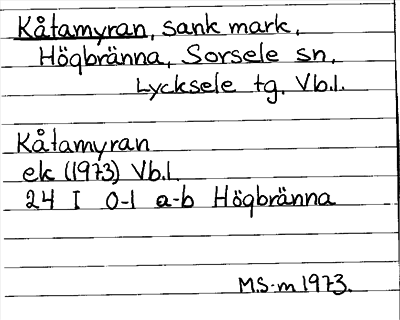 Kåtamyran, sank mark,
Högbränna, Sorsele sn,
Lycksele tg. Vb.l.
Kåtamyran
ek (1973) Vb.l.
24 I 0-1 a-b Högbränna
M.S-m 1973.